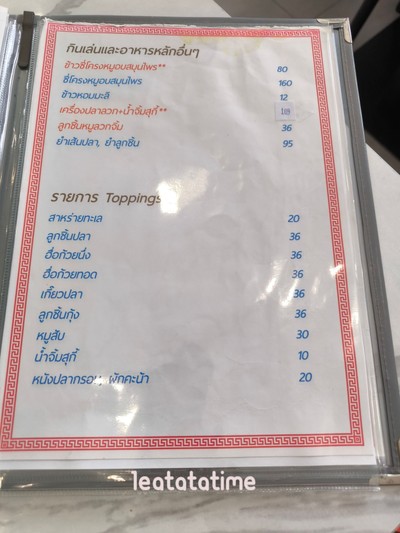 กินเล่นและอาหารหลักอื่นๆ
ข้าวซี่โครงหมูอบสมุนไพร** 80
ซี่โครงหมูอบสมุนไพร 160
ข้าวหอมมะลิ 12
เครื่องปลาลวก+น้ำจิ้มสุกี้**
ลูกชิ้นหมูลวกจิ้ม 36
ยำเส้นปลา, ยำลูกชิ้น 95
รายการ Toppings
สาหร่ายทะเล 20
ลูกชิ้นปลา 36
ฮื่อก้วยนึ่ง 36
ฮื่อก้วยทอด 36
เกี๊ยวปลา 36
ลูกชิ้นกุ้ง 36
หมูสับ 30
น้ำจิ้มสุกี้ 10
หนังปลากรอบ, ผักคะน้า 20
leatatatime